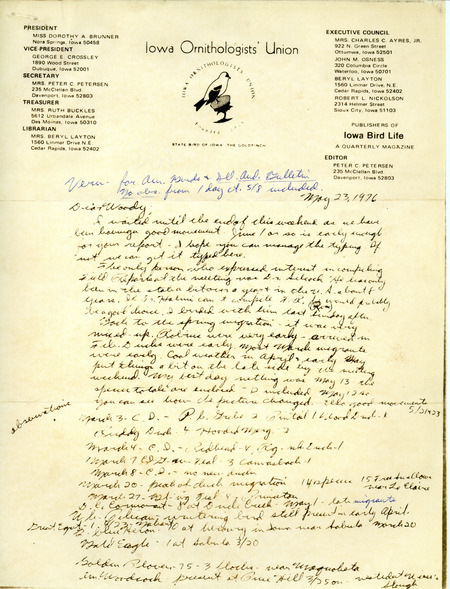 PRESIDENT
MISS DOROTHY A. BRUNNER
Nora Springs, Iowa 50458
VICE-PRESIDENT
GEORGE E. CROSSLEY
1890 Wood Street
Dubuque, Iowa 52001
SECRETARY
MRS. PETER C. PETERSEN
235 McClellan Blvd.
Davenport, Iowa 52803
TREASURER
MRS. RUTH BUCKLES
5612 Urbandale Avenue
Des Moines, Iowa 50310
LIBRARIAN
MRS. BERYL LAYTON
1560 Linmar Drive N.E.
Cedar Rapids, Iowa 52402
Iowa Ornithologists' Union
IOWA ORNITHOLOGISTS' UNION
STATE BIRD OF IOWA THE GOLDFINCH
EXECUTIVE COUNCIL
MRS. CHARLES C. AYRES, JR.
922 N. Green Street
Ottumwa, Iowa 52501
JOHN M. OSNESS
320 Columbia Circle
Waterloo, Iowa 50701
BERYL LAYTON
1560 Linmar Drive, N.E.
Cedar Rapids, Iowa 52402
ROBERT L. NICKOLSON
2314 Helmer Street
Sioux City, Iowa 51103
PUBLISHERS OF
Iowa Bird Life
A QUARTERLY MAGAZINE
EDITOR
PETER C. PETERSEN
235 McClellan Blvd.
Davenport, Iowa 52803
Vern - for Am. Birds & Ill. Aud. Bulletin
No obs. from 1 day ct. 5/8 included.
May 23, 1976
Dear Woody,
I waited until the end of this weekend as we have
been having good movement. June 1 or so is early enough
for your report - I hope you can manage the typing. If
not we can get it typed here.
The only person who expressed interest in compiling
Field Reports at the meeting was Dr.
been in the state a bit over a year in the
years. If
be a good choice. I birded with him last Sunday after.
Back to the spring migration - it was very
mixed up. Robins were very early - arrived in
Feb. Ducks were early, most March migrants
were early. Cool weather in April & early May
put things a bit on the late side by the netting
weekend. Our best day netting was May 13 the
species totals are enclosed - I included May 12 so
you can see how the picture changed. Also good movement
5/21 & 23
observations
March 3 - C.D. - P. b. Grebe 2 Pintail 1 Wood Duck 1
Ruddy Duck 4 Hooded Merg. 2
March 4 - C.D. - Redhead 4 Rg. nk Duck 1
March 7 Teal 3 Canvasback 1
March 8 - C.D. - no new ducks
March 20 - Peak of duck migration 14 species 15 Tree Swallow
near Le Claire
March 27 - Teal 8 Princeton
D. C. Cormorant - 8 at Duck Creek May 1 - late migrants
W. Pelican wintering bird still present in early April.
Great Egret - 1 4/23 Nahant
G. Blue Heron at heronry in Iowa near Sabula March 20
Bald Eagle - 1 at Sabula 3/20
Golden Plover - 75 - 3 flocks near Maquoketa
Am Woodcock present at Pine Hill 3/25 on
Slough